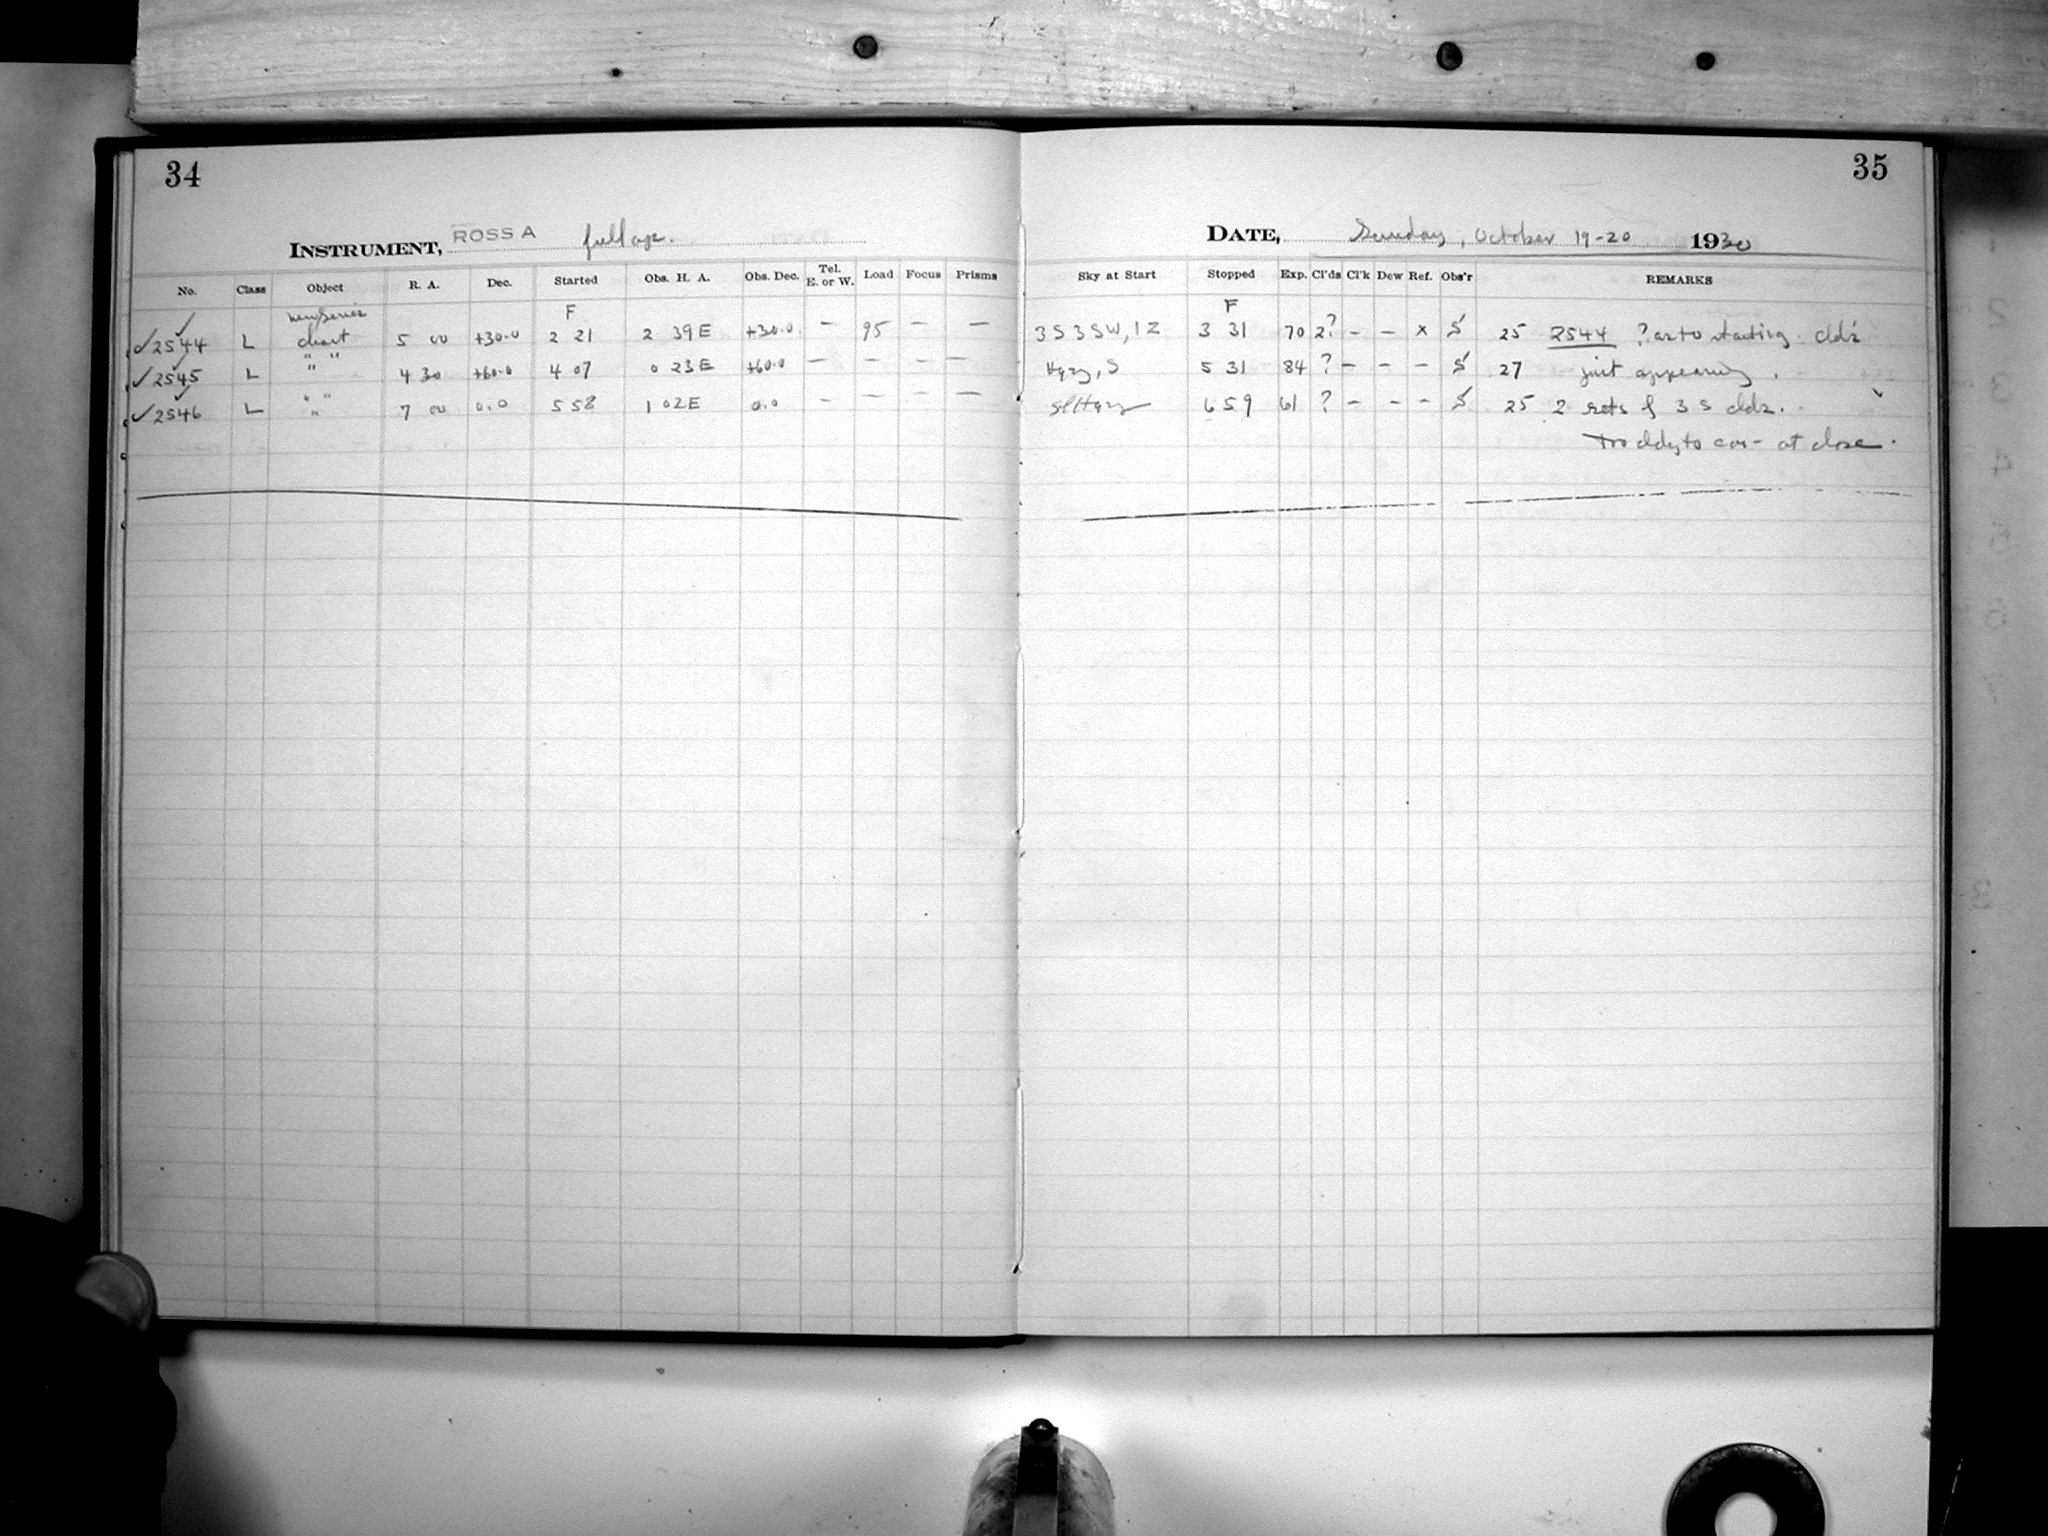 34
INSTRUMENT, ROSS A full ap.
No. Class Object R. A. Dec. Started Obs. H. A. Obs. Dec. Tel. E. or W. Load Focus Prisms
new series F
✓2544 L chart 5 00 +30.0 2 21 2 39E +30.0 – 95 – –
✓2545 L " " " 4 30 +60.0 4 07 0 23E +60.0 – – – –
✓2546 L " " " 7 00 0.0 5 58 1 02E 0.0 – – – –
35
DATE, Sunday, October 19-20 1930
Sky at Start Stopped Exp. Cl'ds Cl'k Dew Ref. Obs'r REMARKS
F
3 S 3 SW, 1 Z 3 31 70 2? – – x S 25 2544 ? as to starting. cldz
Hazy, S 5 31 84 ? – – – S 27 just appearing.
sl Hazy 6 59 61 ? – – – S 25 2 sets of 3 s cldz.
Too cldy to con- at close.